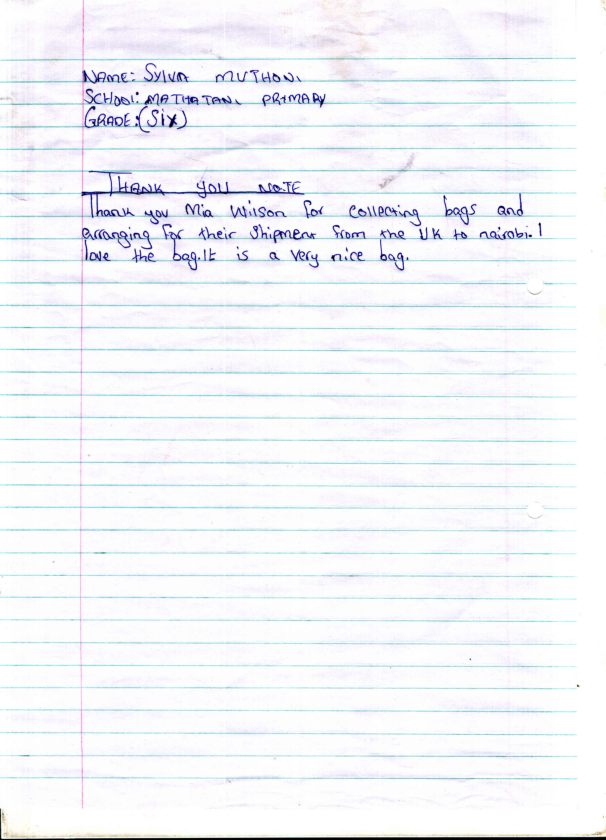 NAME: SYLVA MUTHONI
SCHOOL: MATHATANI PRIMARY
GRADE:(Six)
THANK YOU NOTE
Thank you Mia Wilson for collecting bags and
arranging for their shipment from the UK to nairobi. I
love the bag.It is a very nice bag.